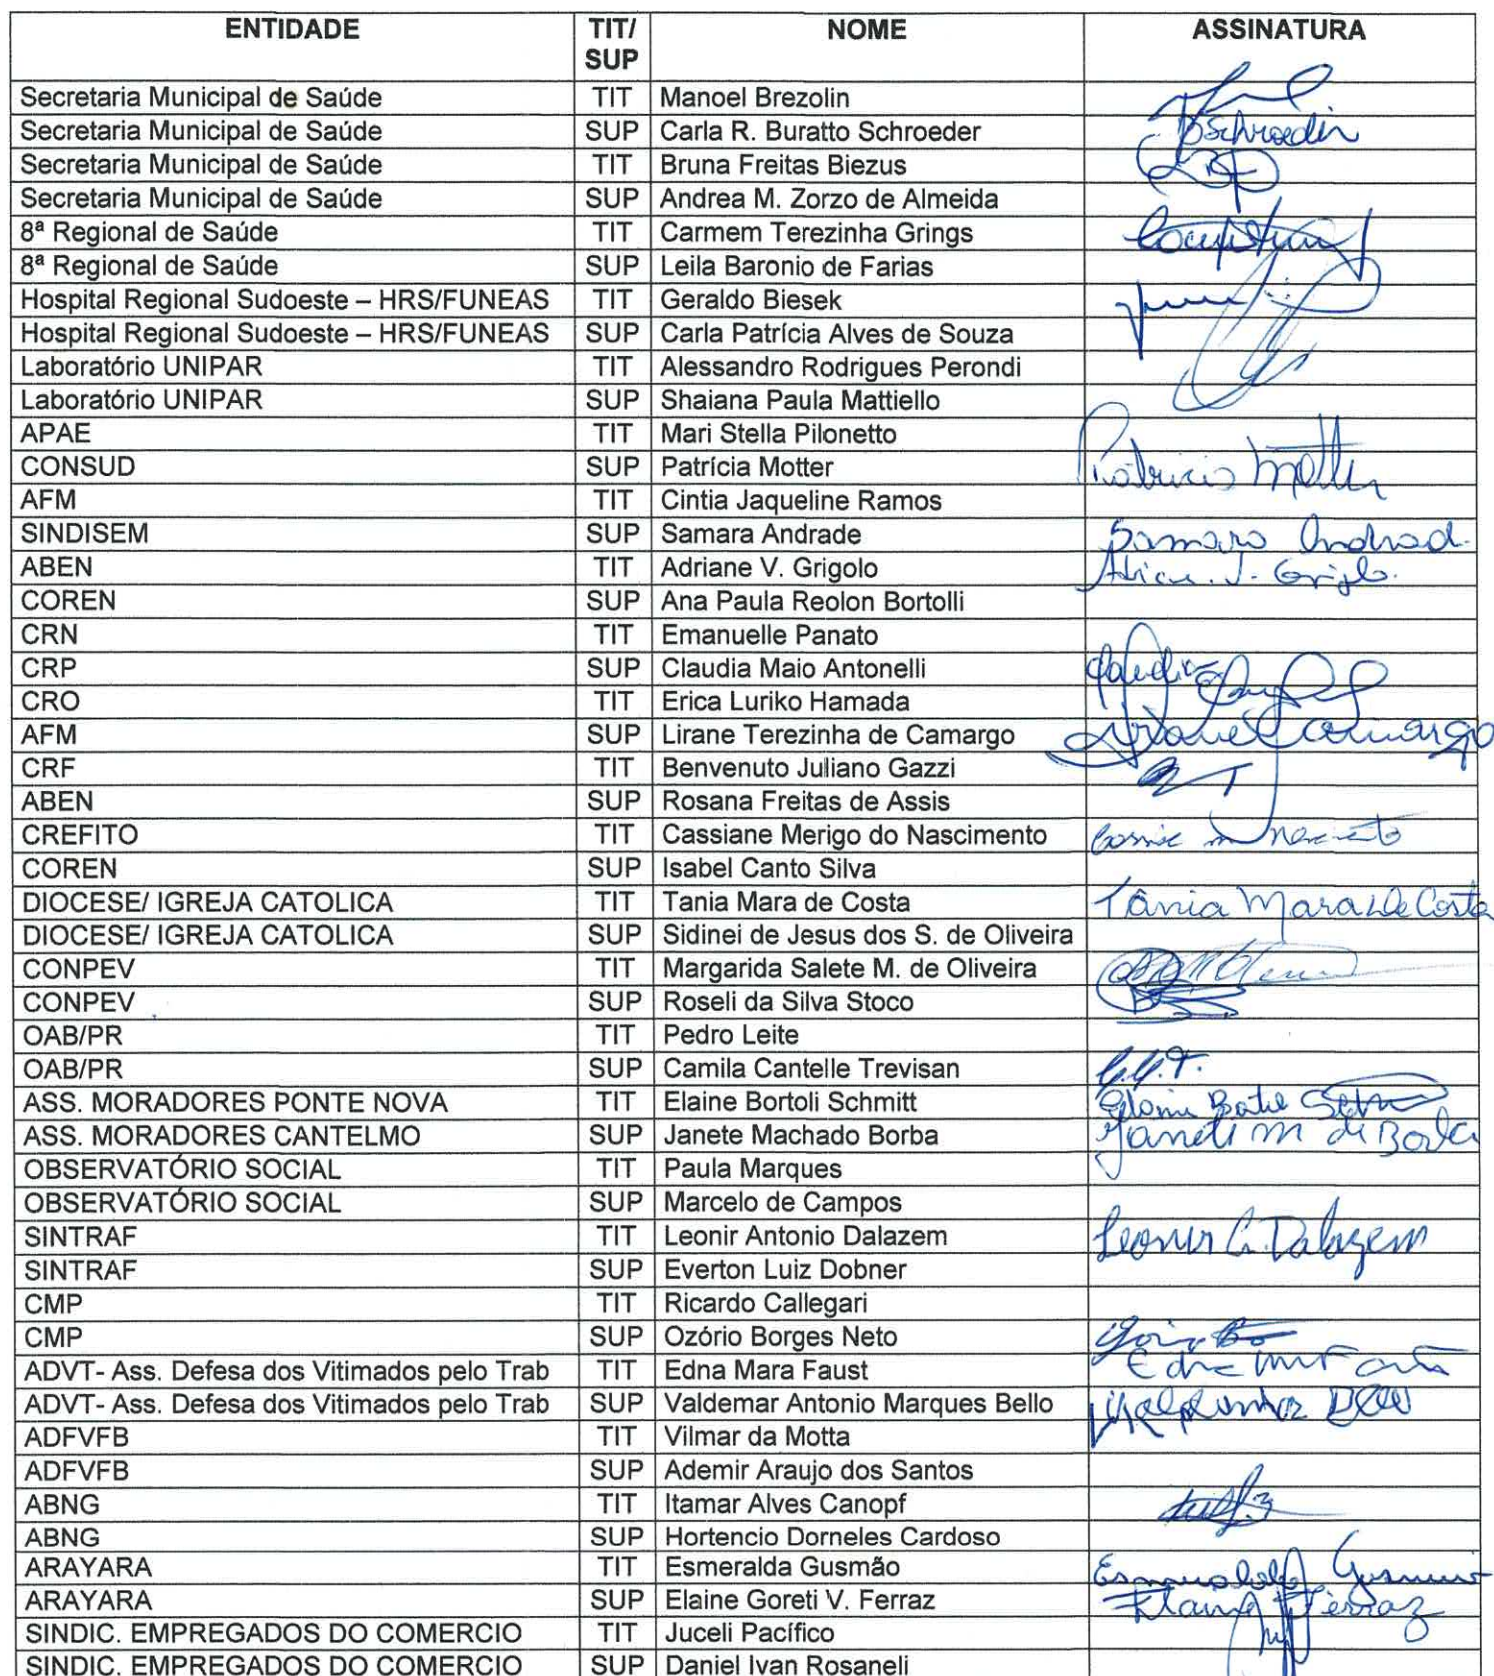 ENTIDADE TIT/ SUP NOME ASSINATURA
Secretaria Municipal de Saúde TIT Manoel Brezolin
Secretaria Municipal de Saúde SUP Carla R. Buratto Schroeder BSchroeder
Secretaria Municipal de Saúde TIT Bruna Freitas Biezus
Secretaria Municipal de Saúde SUP Andrea M. Zorzo de Almeida
8ª Regional de Saúde TIT Carmem Terezinha Grings
8ª Regional de Saúde SUP Leila Baronio de Farias
Hospital Regional Sudoeste – HRS/FUNEAS TIT Geraldo Biesek
Hospital Regional Sudoeste – HRS/FUNEAS SUP Carla Patrícia Alves de Souza
Laboratório UNIPAR TIT Alessandro Rodrigues Perondi
Laboratório UNIPAR SUP Shaiana Paula Mattiello
APAE TIT Mari Stella Pilonetto
CONSUD SUP Patrícia Motter Patricia Motter
AFM TIT Cintia Jaqueline Ramos
SINDISEM SUP Samara Andrade Samara Andrad.
ABEN TIT Adriane V. Grigolo
COREN SUP Ana Paula Reolon Bortolli
CRN TIT Emanuelle Panato
CRP SUP Claudia Maio Antonelli Claudia
CRO TIT Erica Luriko Hamada
AFM SUP Lirane Terezinha de Camargo Lirane Camargo
CRF TIT Benvenuto Juliano Gazzi
ABEN SUP Rosana Freitas de Assis
CREFITO TIT Cassiane Merigo do Nascimento
COREN SUP Isabel Canto Silva
DIOCESE/ IGREJA CATOLICA TIT Tania Mara de Costa Tânia Mara de Costa
DIOCESE/ IGREJA CATOLICA SUP Sidinei de Jesus dos S. de Oliveira
CONPEV TIT Margarida Salete M. de Oliveira
CONPEV SUP Roseli da Silva Stoco
OAB/PR TIT Pedro Leite
OAB/PR SUP Camila Cantelle Trevisan C.C.T.
ASS. MORADORES PONTE NOVA TIT Elaine Bortoli Schmitt
ASS. MORADORES CANTELMO SUP Janete Machado Borba Janete M de Borba
OBSERVATÓRIO SOCIAL TIT Paula Marques
OBSERVATÓRIO SOCIAL SUP Marcelo de Campos
SINTRAF TIT Leonir Antonio Dalazem Leonir A. Dalazem
SINTRAF SUP Everton Luiz Dobner
CMP TIT Ricardo Callegari
CMP SUP Ozório Borges Neto
ADVT- Ass. Defesa dos Vitimados pelo Trab TIT Edna Mara Faust
ADVT- Ass. Defesa dos Vitimados pelo Trab SUP Valdemar Antonio Marques Bello
ADFVFB TIT Vilmar da Motta
ADFVFB SUP Ademir Araujo dos Santos
ABNG TIT Itamar Alves Canopf
ABNG SUP Hortencio Dorneles Cardoso
ARAYARA TIT Esmeralda Gusmão
ARAYARA SUP Elaine Goreti V. Ferraz Elaine Ferraz
SINDIC. EMPREGADOS DO COMERCIO TIT Juceli Pacífico
SINDIC. EMPREGADOS DO COMERCIO SUP Daniel Ivan Rosaneli